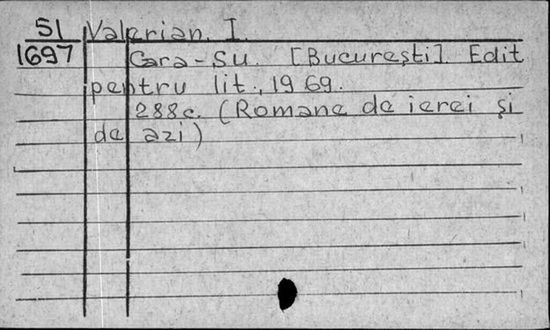 51 Valerian. I.
1697 Cara-Su. [București]. Edit
pentru lit., 1969.
288c. (Romane de ierei și
de azi)